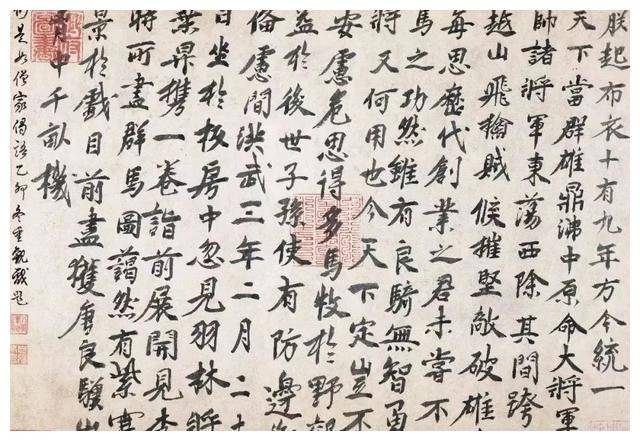 朕起布衣十有九年方今統一
天下當群雄鼎沸中原命大將軍
帥諸將軍東蕩西除其間跨
越山飛轓賊候摧堅敵破雄
每思歷代創業之君未嘗不
馬之功然雖有良騎無智勇
將又何用也今天下定豈不
安慮危思得多馬牧於野郊
益於後世子孫使有防邊
偹慮間洪武三年二月二十
日坐於板房中忽見羽林將
葉昇携一卷詣前展開見李
時所畫群馬圖藹然有紫塞
景於戲目前盡獲唐良驥
中千畝機
如僧家偈語乙卯冬重觀戲題